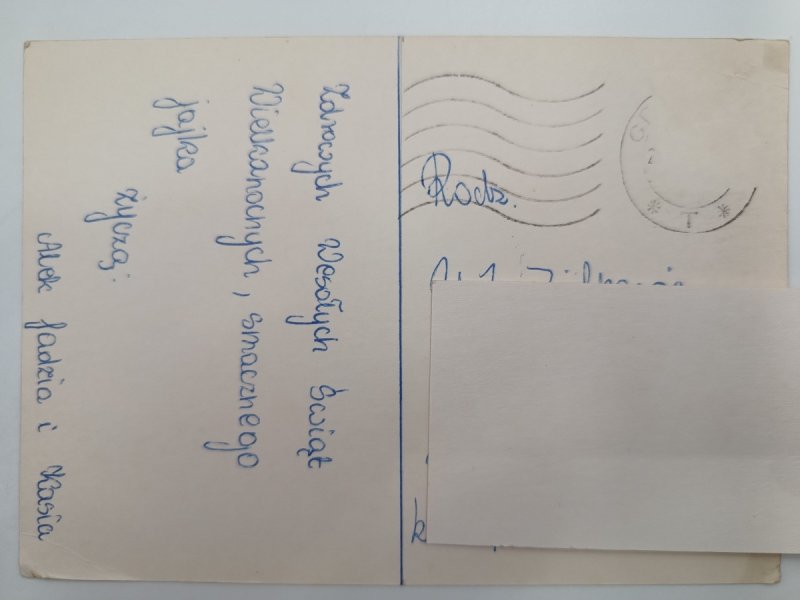 Zdrowych Wesołych Świąt
Wielkanocnych, smacznego
jajka
życzą:
Alek Jadzia i Kasia
Rodz.
* T *